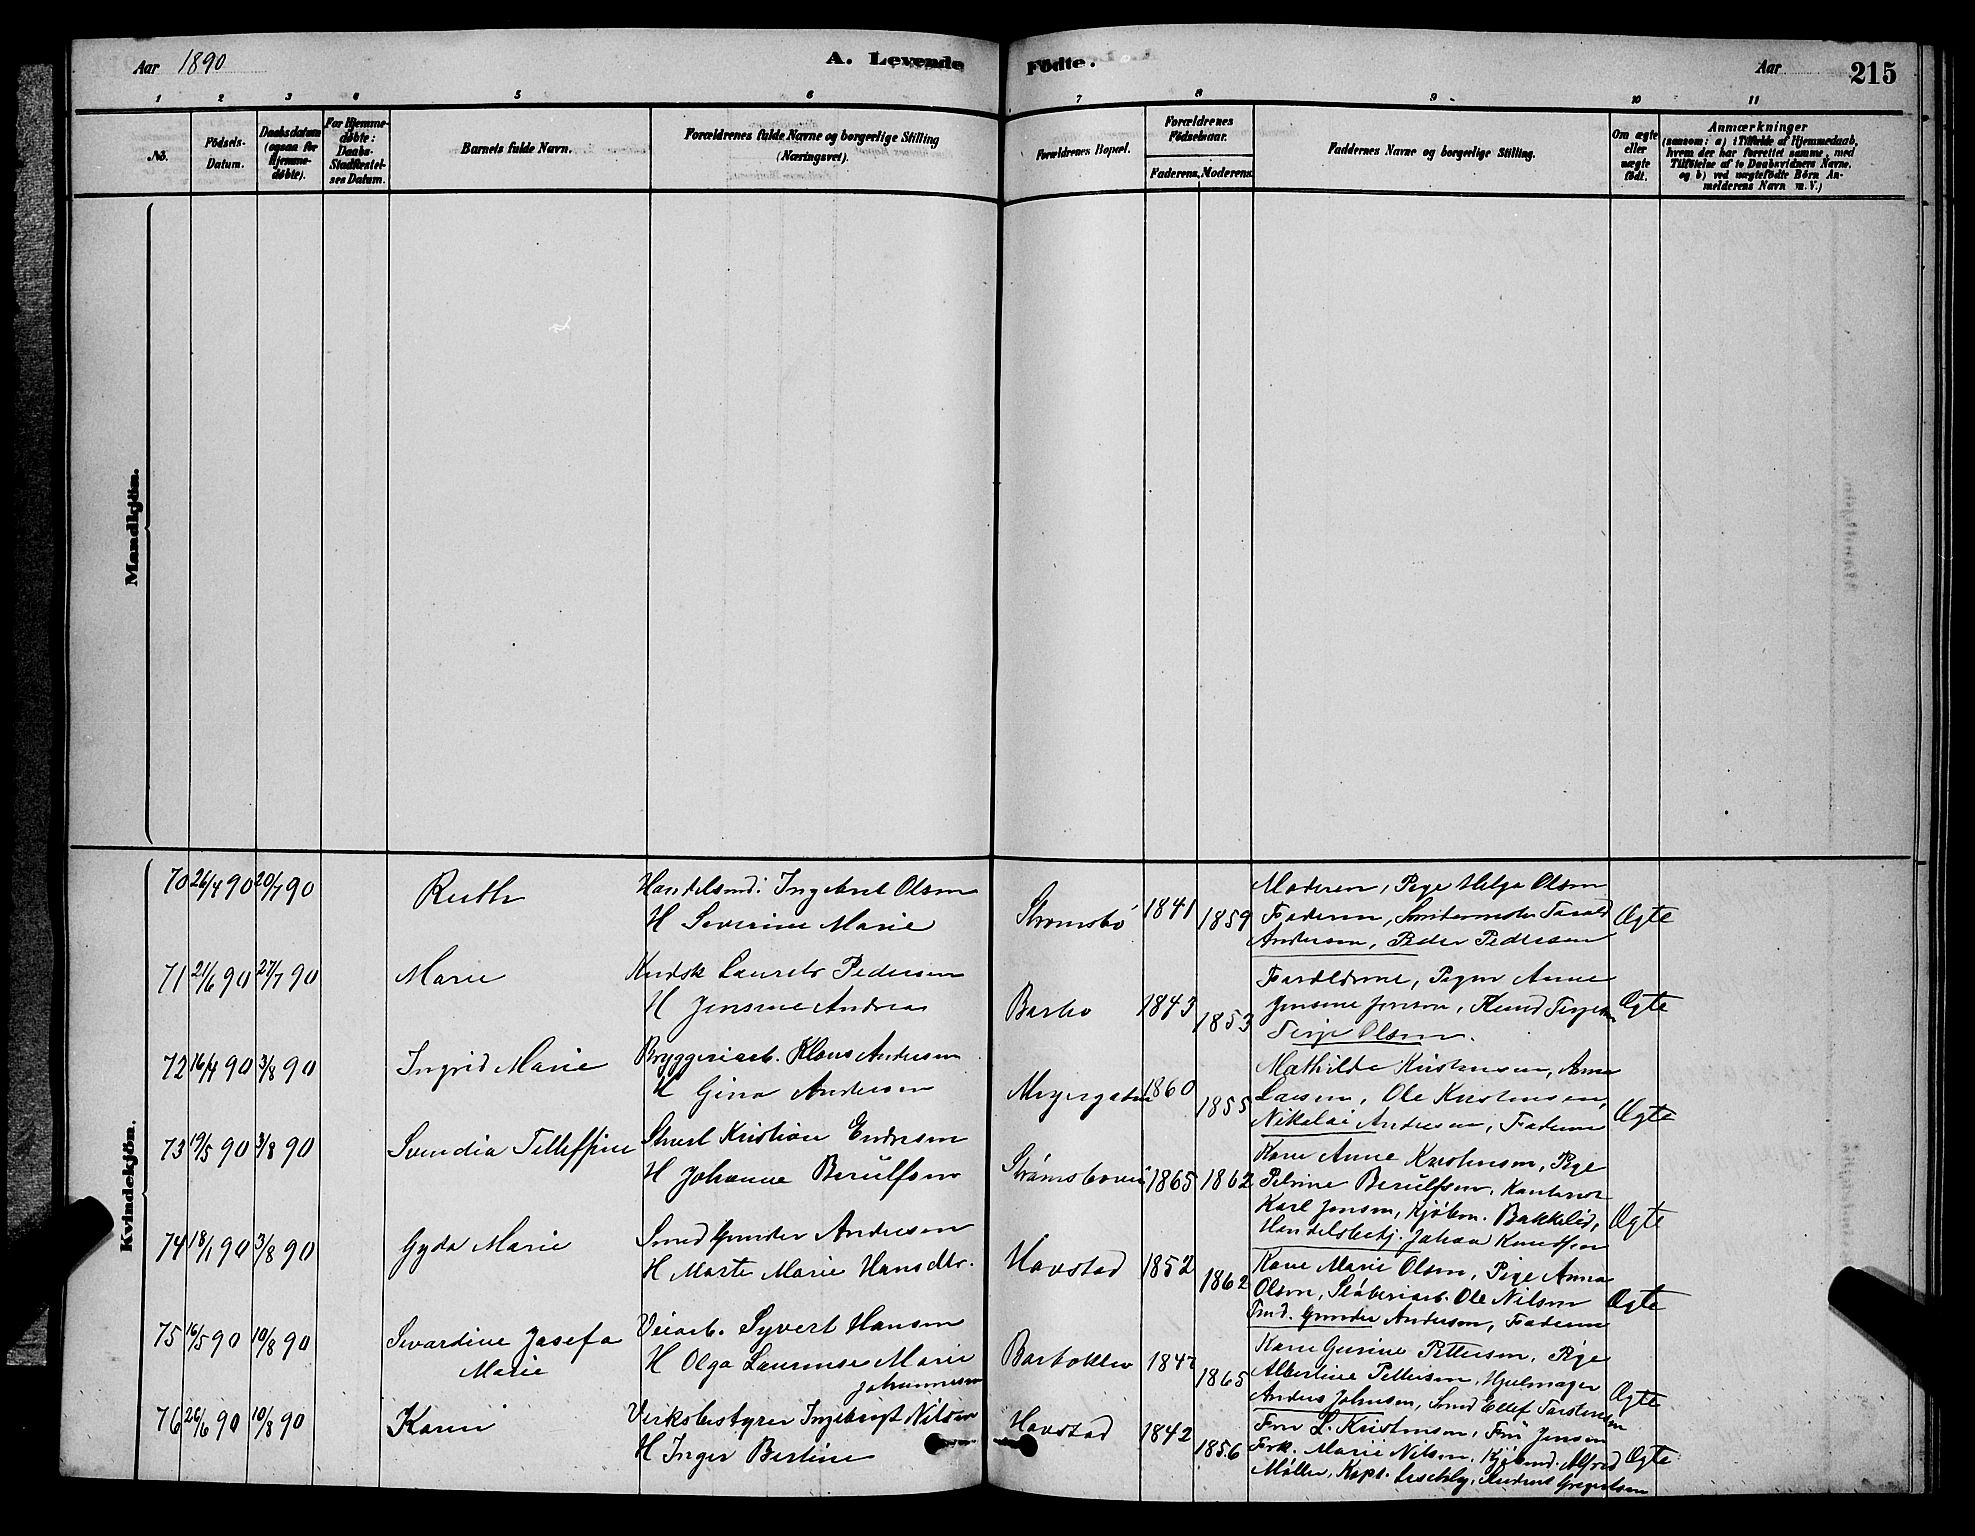 Aar 1890
A. Levende Födte.
Aar
215
1 2 3 4 5 6 7 8 9 10 11
No.
Födsels-
Datum.
Daabsdatum
(ogsaa for
Hjemme-
döbte).
For Hjemme-
döbte:
Daabs-
Stadfæstel-
ses Datum.
Barnets fulde Navn.
Forældrenes fulde Navne og borgerlige Stilling
(Næringsvei).
Forældrenes Bopæl.
Forældrenes
Födselsaar.
Faderens. Moderens.
Faddernes Navne og borgerlige Stilling.
Om ægte
eller
uægte
födt.
Anmærkninger
(saasom: a) i Tilfælde af Hjemmedaab,
hvem der har forrettet samme, med
Tilföielse af to Daabsvidners Navne,
og b) ved uægtefödte Börn An-
melderens Navn m. V.)
Mandkjön.
Kvindekjön.
70 26/4 90 20/7 90 Ruth
Handelsmd: Ingebret Olsen
H Severine Marie
Strømsbo 1841 1859
Moderen, Pige Helga Olsen
Faderen, Taral
Andersen, Peder Pedersen
Ægte
71 21/6 90 27/7 90 Marie
Kudsk Laurits Pedersen
H Jensine Andrea
Barbo 1843 1853
Forældrene, Pigen Anne
Jensine Jensen, Knud Terjesen
Terje Olsen.
Ægte
72 16/4 90 3/8 90 Ingrid Marie
Bryggeriarb. Klaus Andersen
H Gina Andersen
Meyergaten 1860 1855
Mathilde Kristensen, Anna
Larsen, Ole Kristensen,
Nikolai Andersen, Faderen
Ægte
73 19/5 90 3/8 90 Svendia Telleffine
Kristian Endresen
H Johanne Berulfsen
1865 1862
Kone Anne Karstensen, Pige
Petrine Berulfsen, Kontorist
Karl Jensen, Kjøbm. Bakkelid,
Handelsbetj. Johan Knudsen
Ægte
74 18/1 90 3/8 90 Gyda Marie
Smed Gunder Andersen
H Marte Marie Hansdtr.
Havstad 1852 1862
Kone Marie Olsen, Pige Anna
Olsen, Støberiarb. Ole Nilsen
Smd. Gunder Andersen, Faderen
Ægte
75 16/5 90 10/8 90 Sevardine Josefa
Marie
Veiarb. Syvert Hansen
H Olga Laurense Marie
Johannesen
1865
Kone Gurine Pettersen, Pige
Albertine Pettersen, Hjulmager
Anders Johnsen, Smed Ellef Tarstensen
Ægte
76 26/6 90 10/8 90 Karen
Verksbestyrer Ingebrigt Nilsen
H Inger Bertine
Havstad 1842 1856
Fru L. Kristensen, Fru Jensen
Frk. Marie Nilsen, Kjøbmd. Alfred
Møller, Kapt. Gregertsen
Ægte